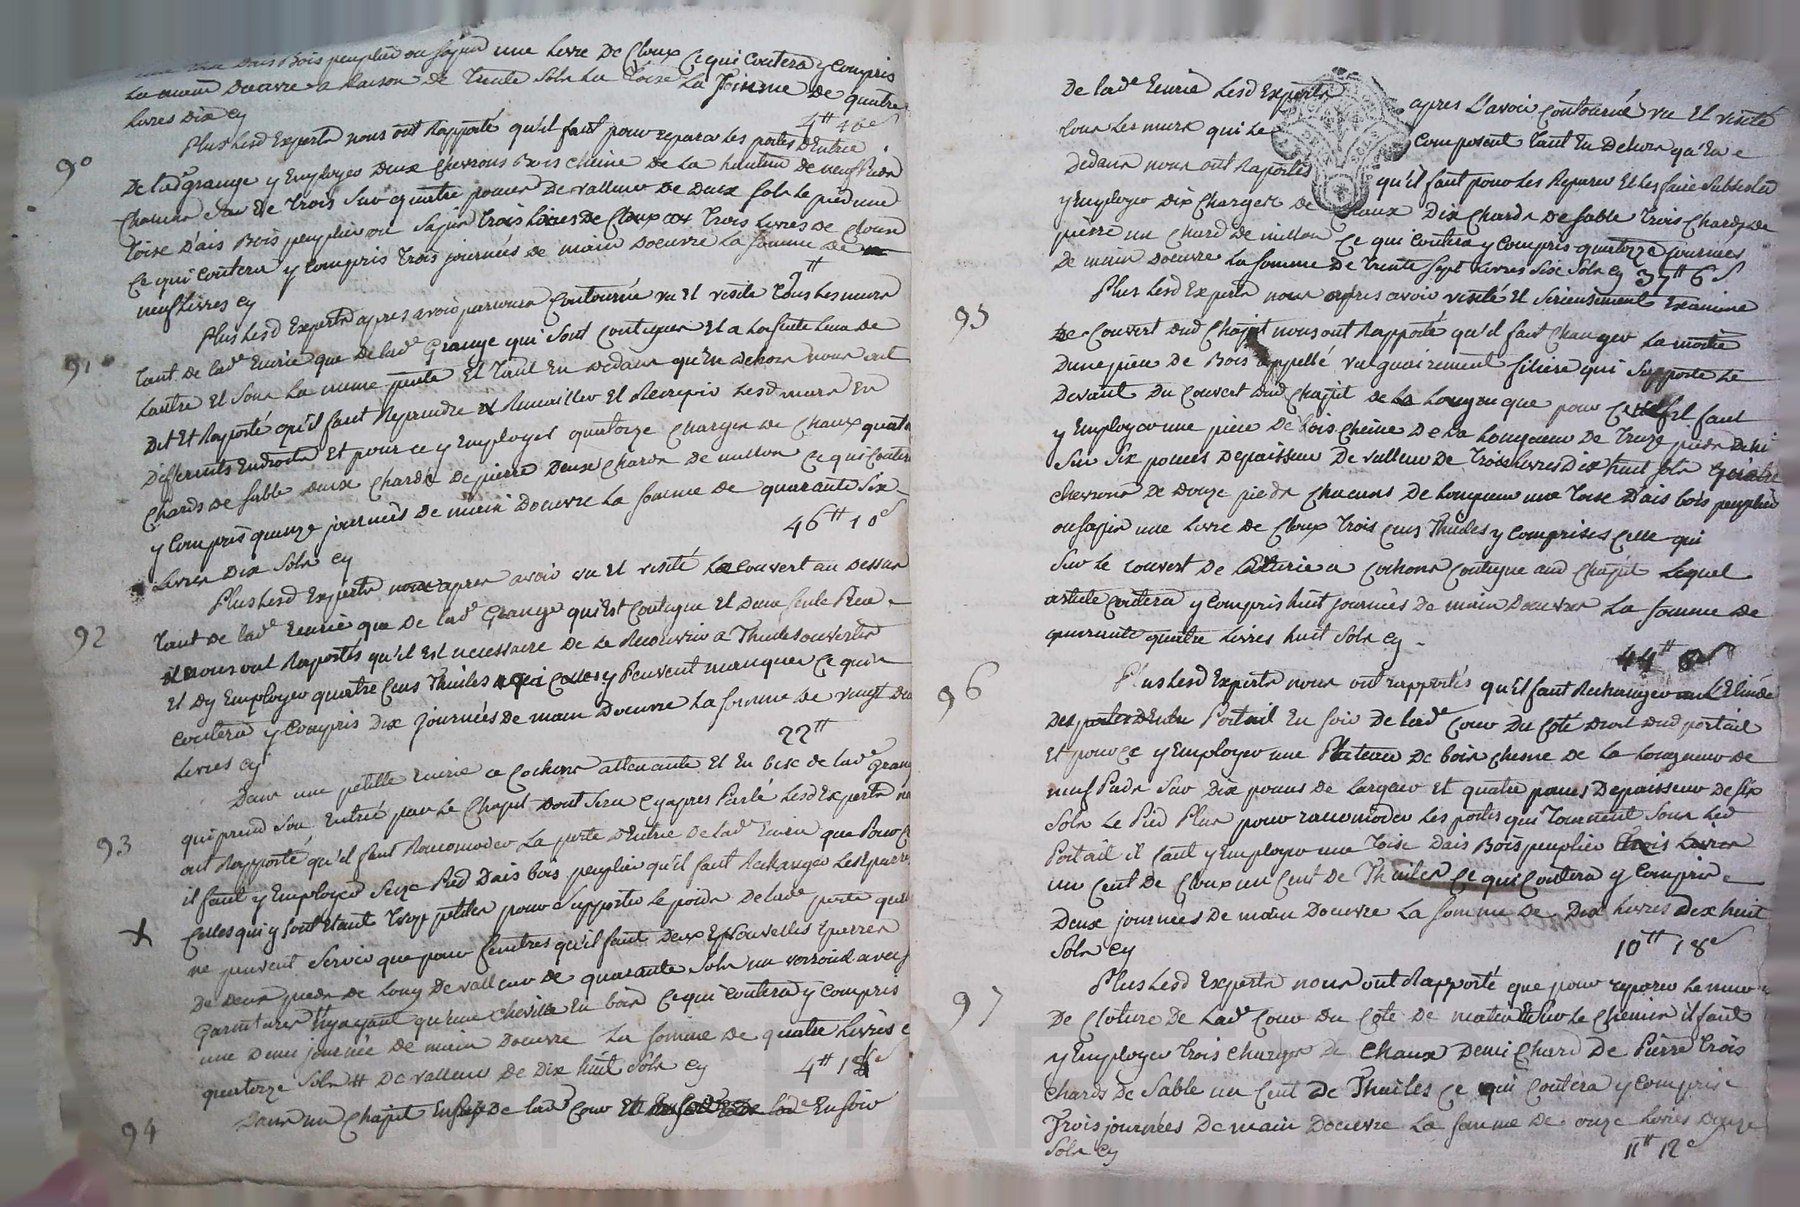 une toise Dais Bois peuplier ou sapin une Livre De Cloux Ce qui Coutera y Compris
La main Doeuvre a Raison de Trente Sols La Toise La somme de quatre
Livres Dix Cy
4# 10s
90
Plus Lesd Experts nous ont Rapporté qu'il faut pour reparer les portes D'Entrée
De lade grange y Employer Deux Chevrons Bois cheine de la hauteur de neuf Pieds
Chacun de Trois sur quatre pouces De valleur de Deux sols le pied une
Toise D'ais Bois peuplier ou sapin Trois Livres De Cloux Trois Livres de Cloux
Ce qui Coutera y Compris trois journées de main Doeuvre La somme De
neuf Livres Cy
9#
91
Plus Lesd Experts apres avoir parcouru Contourné vu et visité Tous Les murs
Tant de lade Ecurie que De lade Grange qui sont Contigues Et a La suite Lune de
Lautre Et sous La meme pente Et Tant En Dedans qu'En Dehors nous ont
Dit Et Raporté qu'il faut Reprendre Et Remailler Et Recrepir Lesd murs En
Differents Endroits Et pour ce y Employer quatorze Charges de Chaux quatre
Chards de sable deux Chards De pierre Deux Chards De millon Ce qui Coutera
y Compris quinze journées de main Doeuvre La somme de quarante six
Livres Dix Sols Cy
46# 10s
92
Plus Lesd Experts apres avoir vu et visité Le Couvert au Dessus
Tant de lade Ecurie que De lade Grange qui Est Contigue Et Dune seule
il nous ont Raportés qu'il Est necessaire de Le Recouvrir a Thuile ouverte
Et Dy Employer quatre Cens Thuiles qui y Peuvent manquer Ce qui
Coutera y Compris Dix journées de main Doeuvre La somme de vingt deux
Livres Cy
22#
Dans une petitte Ecurie a Cochons attenante Et En bise de lade Grange
93
qui prend son Entrée par le Chapit Dont sera Cy apres Parlé Lesd Experts nous
ont Rapporté qu'il faut Racomoder La porte D'Entrée De lade Ecurie que Pour Ce
il faut y Employer seize Pied Dais bois peuplier qu'il faut Rechanger Les
Celles qui y sont Etant Trop petites pour supporter le poids De lade porte
ne peuvent servir que pour fenetres qu'il faut Deux Nouvelles
De deux pieds de Long De valleur de quarante Sols un verrouil avec ses
garnitures N'y ayant qu'une Cheville En bois Ce qui Coutera y Compris
une Demi journée De main Doeuvre La somme De quatre Livres
quatorze Sols De valleur de Dix huit Sols Cy
4# 18s
94
Dans un Chapit En de lade Cour lade En soir
De lade Ecurie Lesd Experts apres L'avoir Contourné vu Et visité
Tous Les murs qui Le Composent Tant En Dehors qu'En
Dedans nous ont Raportés qu'il faut pour Les Reparer Et les faire subsister
y Employer Dix Charges de Chaux Dix Chards de sable Trois Chards de
pierre un Chard de millon Ce qui Coutera y Compris quatorze journées
De main Doeuvre La somme De Trente sept Livres Six Sols Cy 37# 6s
95
Plus Lesd Experts nous apres avoir visité Et serieusement Examiné
Le Couvert dud Chapit nous ont Rapporté qu'il faut Changer La moitié
Dune piece De Bois appellé vulguairement filiere qui supporte Le
Devant Du Couvert Dud Chapit pour Cet Effet il faut
y Employer une piece De bois Cheine De la Longueur De Treize pieds
sur six pouces Depaisseur De valleur De Trois Livres Dix huit sols quatre
Chevrons De Douze pieds Chacuns De Longueur une Toise D'ais bois peuplier
ou sapin une Livre De Cloux Trois Cens Thuiles y Comprises Celle qui
sur le couvert de a Cochons Contigue aud Chapit Lequel
article Coutera y Compris huit journées De main Doeuvre La somme De
quarante quatre Livres huit Sols Cy
44# 8s
96
Plus Lesd Experts nous ont rapportés qu'il faut Rechanger
Portail En soir De lade Cour Du Coté Droit Dud portail
Et pour Ce y Employer une Plateau De bois chesne De La Longueur De
neuf Pieds Sur Dix pouces De Largeur Et quatre pouces Depaisseur De six
Sols Le Pied Plus pour racomoder Les portes qui Tournent Sous Led
Portail il faut y Employer une Toise Dais Bois peuplier
un Cent De Cloux un Cent De Thuiles Ce qui Coutera y Compris
Deux journées De main Doeuvre La somme De Dix Livres Dix huit
Sols Cy
10# 18s
97
Plus Lesd Experts nous ont Rapporté que pour reparer Le mur
De Cloture De Lade Cour Du Coté De matin Et sur le Chemin il faut
y Employer Trois Charges De Chaux Demi Chard De Pierre Trois
Chards De Sable un Cent De Thuiles Ce qui Coutera y Compris
Trois journées De main Doeuvre La somme De onze Livres Douze
Sols Cy
11# 12s